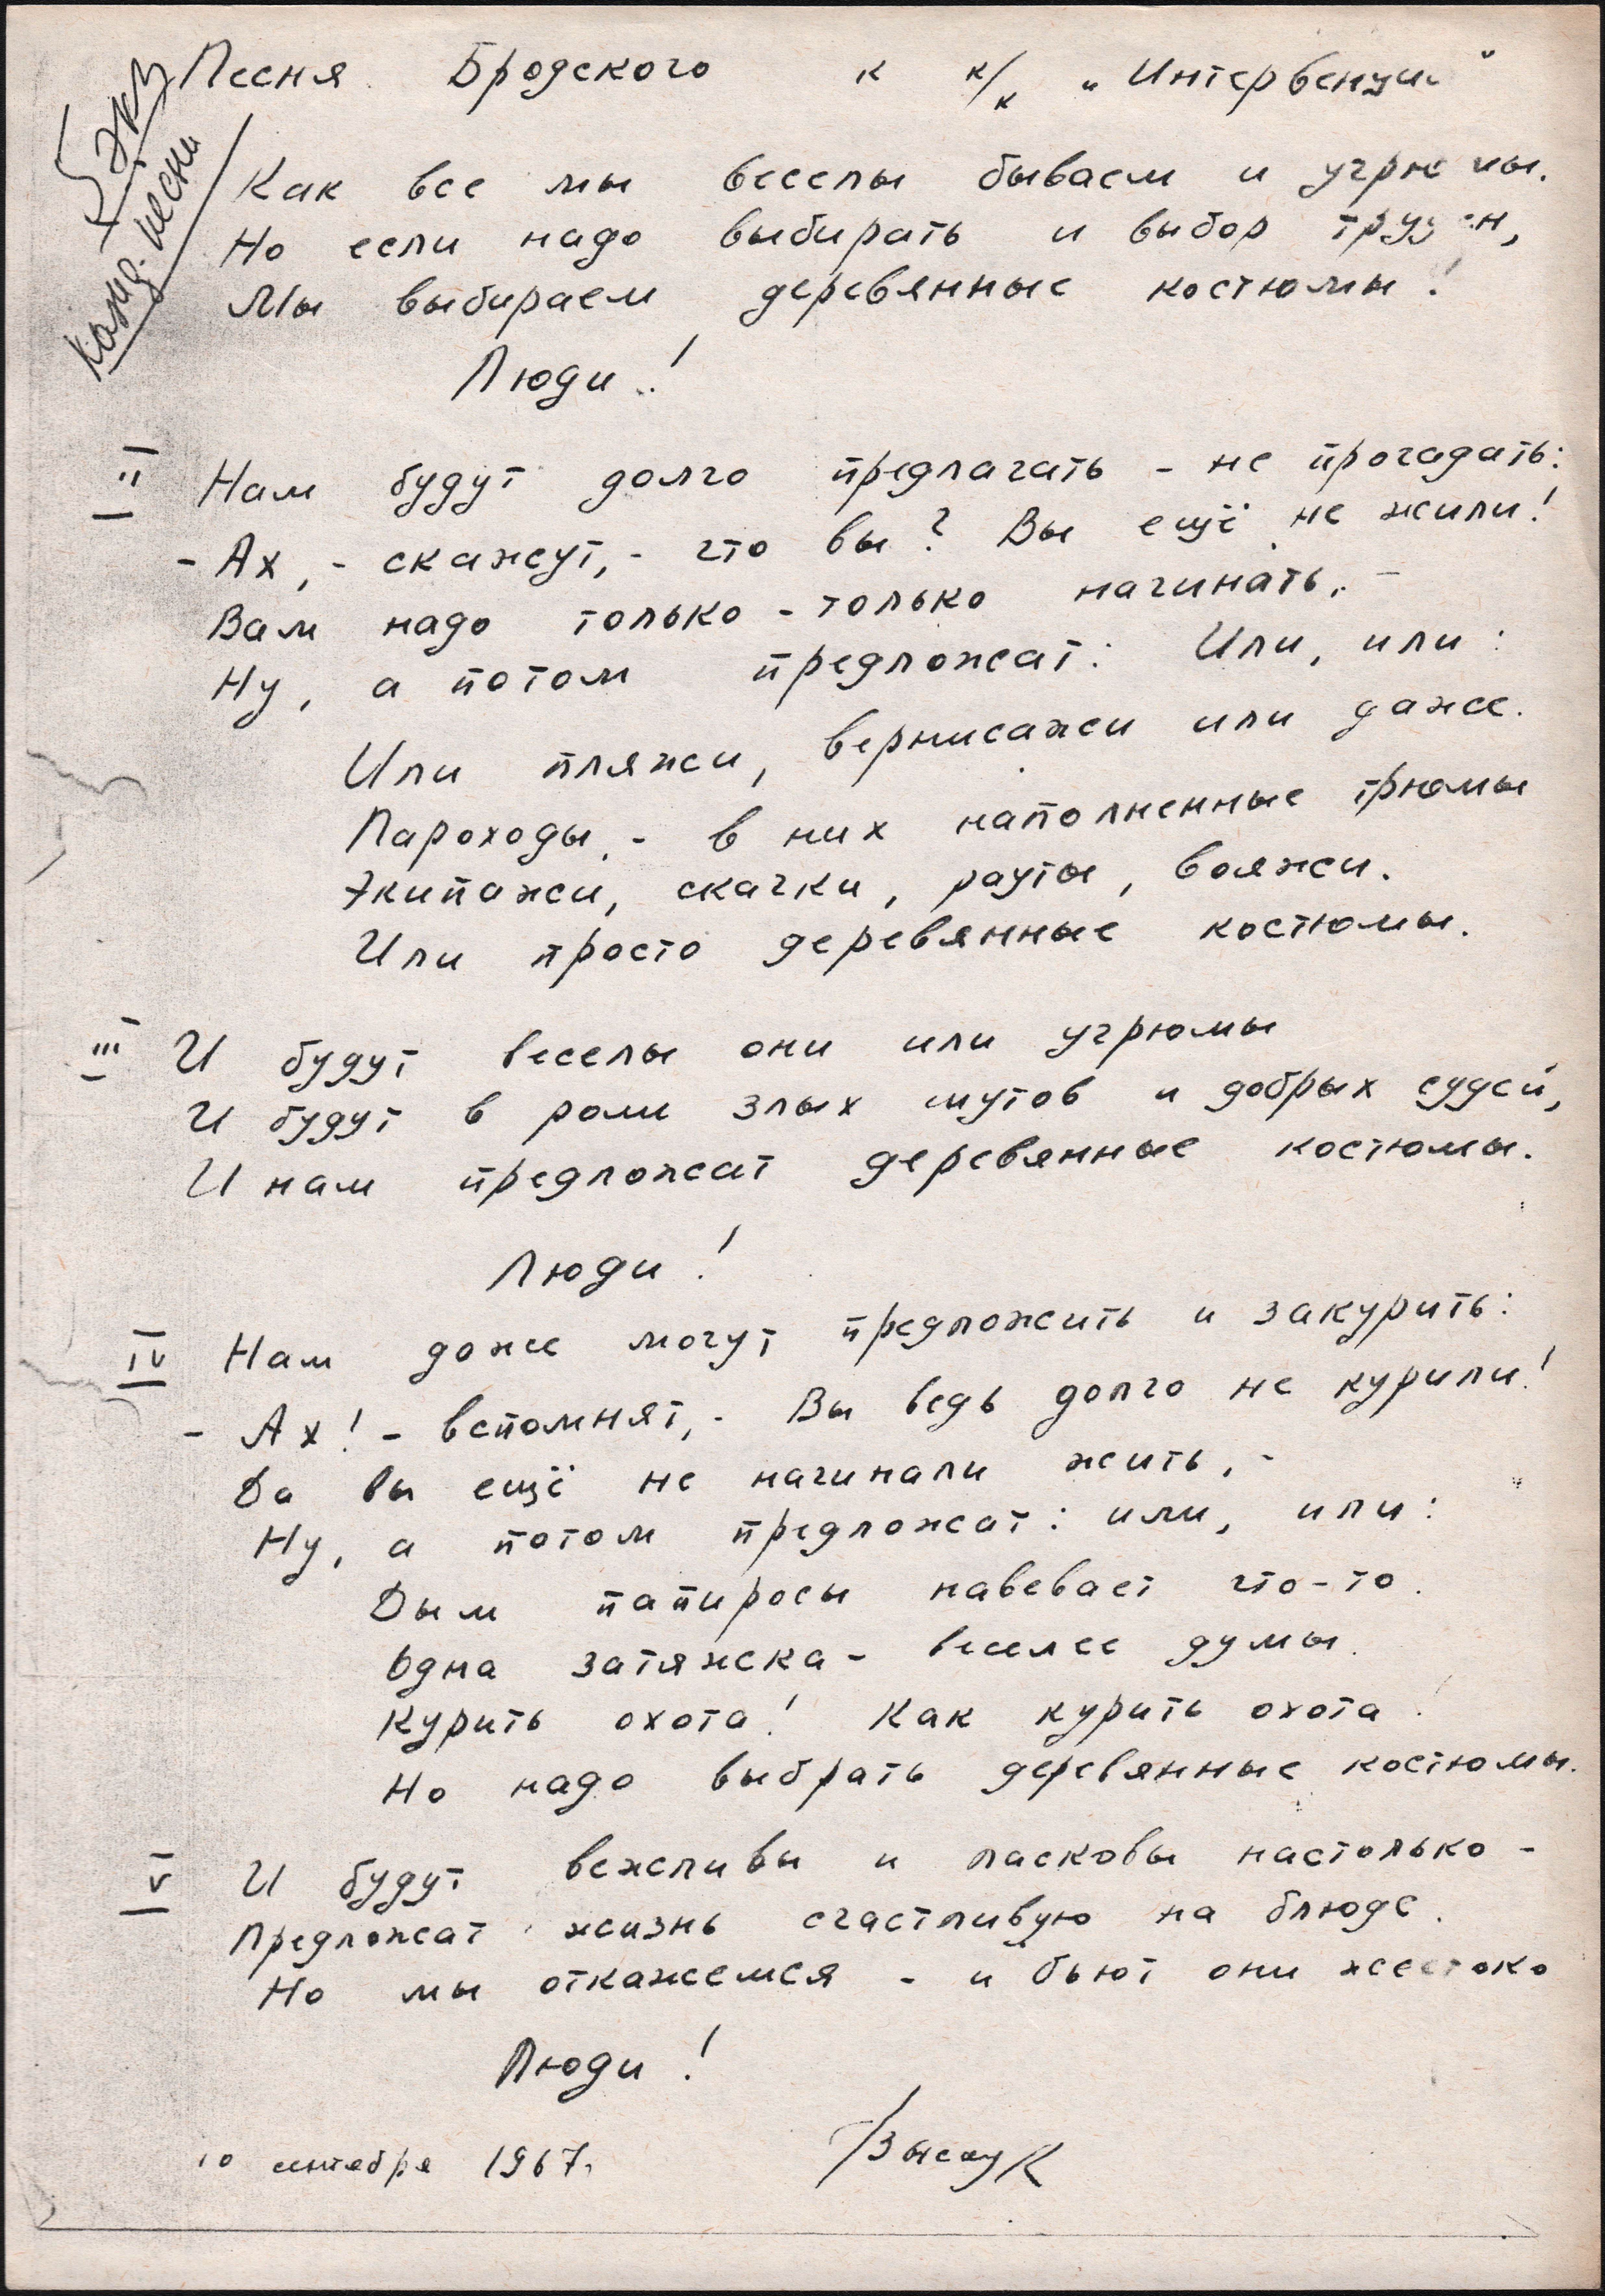 5 экз
канд. песни
Песня Бродского к к/к „Интервенция"
Как все мы веселы бываем и угрюмы.
Но если надо выбирать и выбор труден,
Мы выбираем деревянные костюмы!
Люди!
II Нам будут долго предлагать - не прогадать:
- Ах, - скажут, - что вы? Вы ещё не жили!
Вам надо только-только начинать, -
Ну, а потом предложат: Или, или:
Или пляжи, вернисажи или даже.
Пароходы, - в них наполненные трюмы
Экипажи, скачки, рауты, вояжи.
Или просто деревянные костюмы.
III И будут веселы они или угрюмы
И будут в роли злых шутов и добрых судей,
И нам предложат деревянные костюмы.
Люди!
IV Нам даже могут предложить и закурить:
- Ах! - вспомнят, - Вы ведь долго не курили!
Да вы ещё не начинали жить, -
Ну, а потом предложат: или, или:
Дым папиросы навевает что-то.
Одна затяжка - веселее думы.
Курить охота! Как курить охота!
Но надо выбрать деревянные костюмы.
V И будут вежливы и ласковы настолько -
Предложат жизнь счастливую на блюде.
Но мы откажемся - и бьют они жестоко
Люди!
10 сентября 1967г.